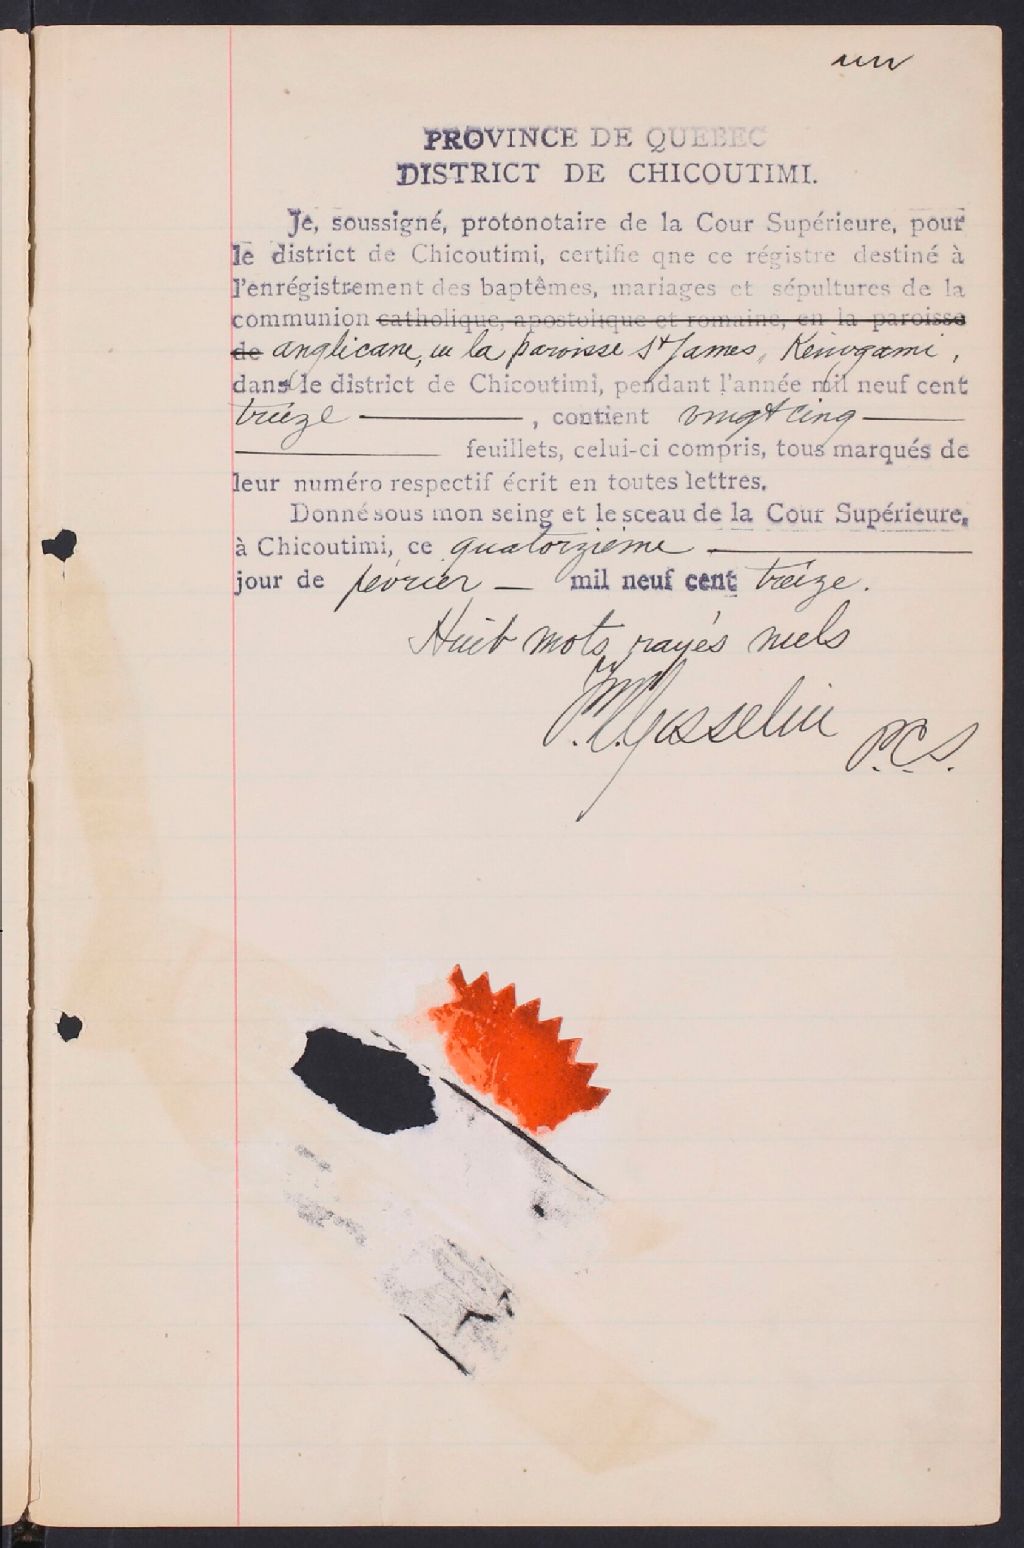 un
PROVINCE DE QUEBEC
DISTRICT DE CHICOUTIMI.
Je, soussigné, protonotaire de la Cour Supérieure, pour
le district de Chicoutimi, certifie qne ce régistre destiné à
l'enrégistrement des baptêmes, mariages et sépultures de la
communion catholique, apostolique et romaine, en la paroisse
de anglicane, en la paroisse St James, Kenogami,
dans le district de Chicoutimi, pendant l'année mil neuf cent
treize , contient vingt cinq
feuillets, celui-ci compris, tous marqués de
leur numéro respectif écrit en toutes lettres.
Donné sous mon seing et le sceau de la Cour Supérieure,
à Chicoutimi, ce quatorzième
jour de février — mil neuf cent treize.
Huit mots rayés nuls
Gosselin P.C.S.